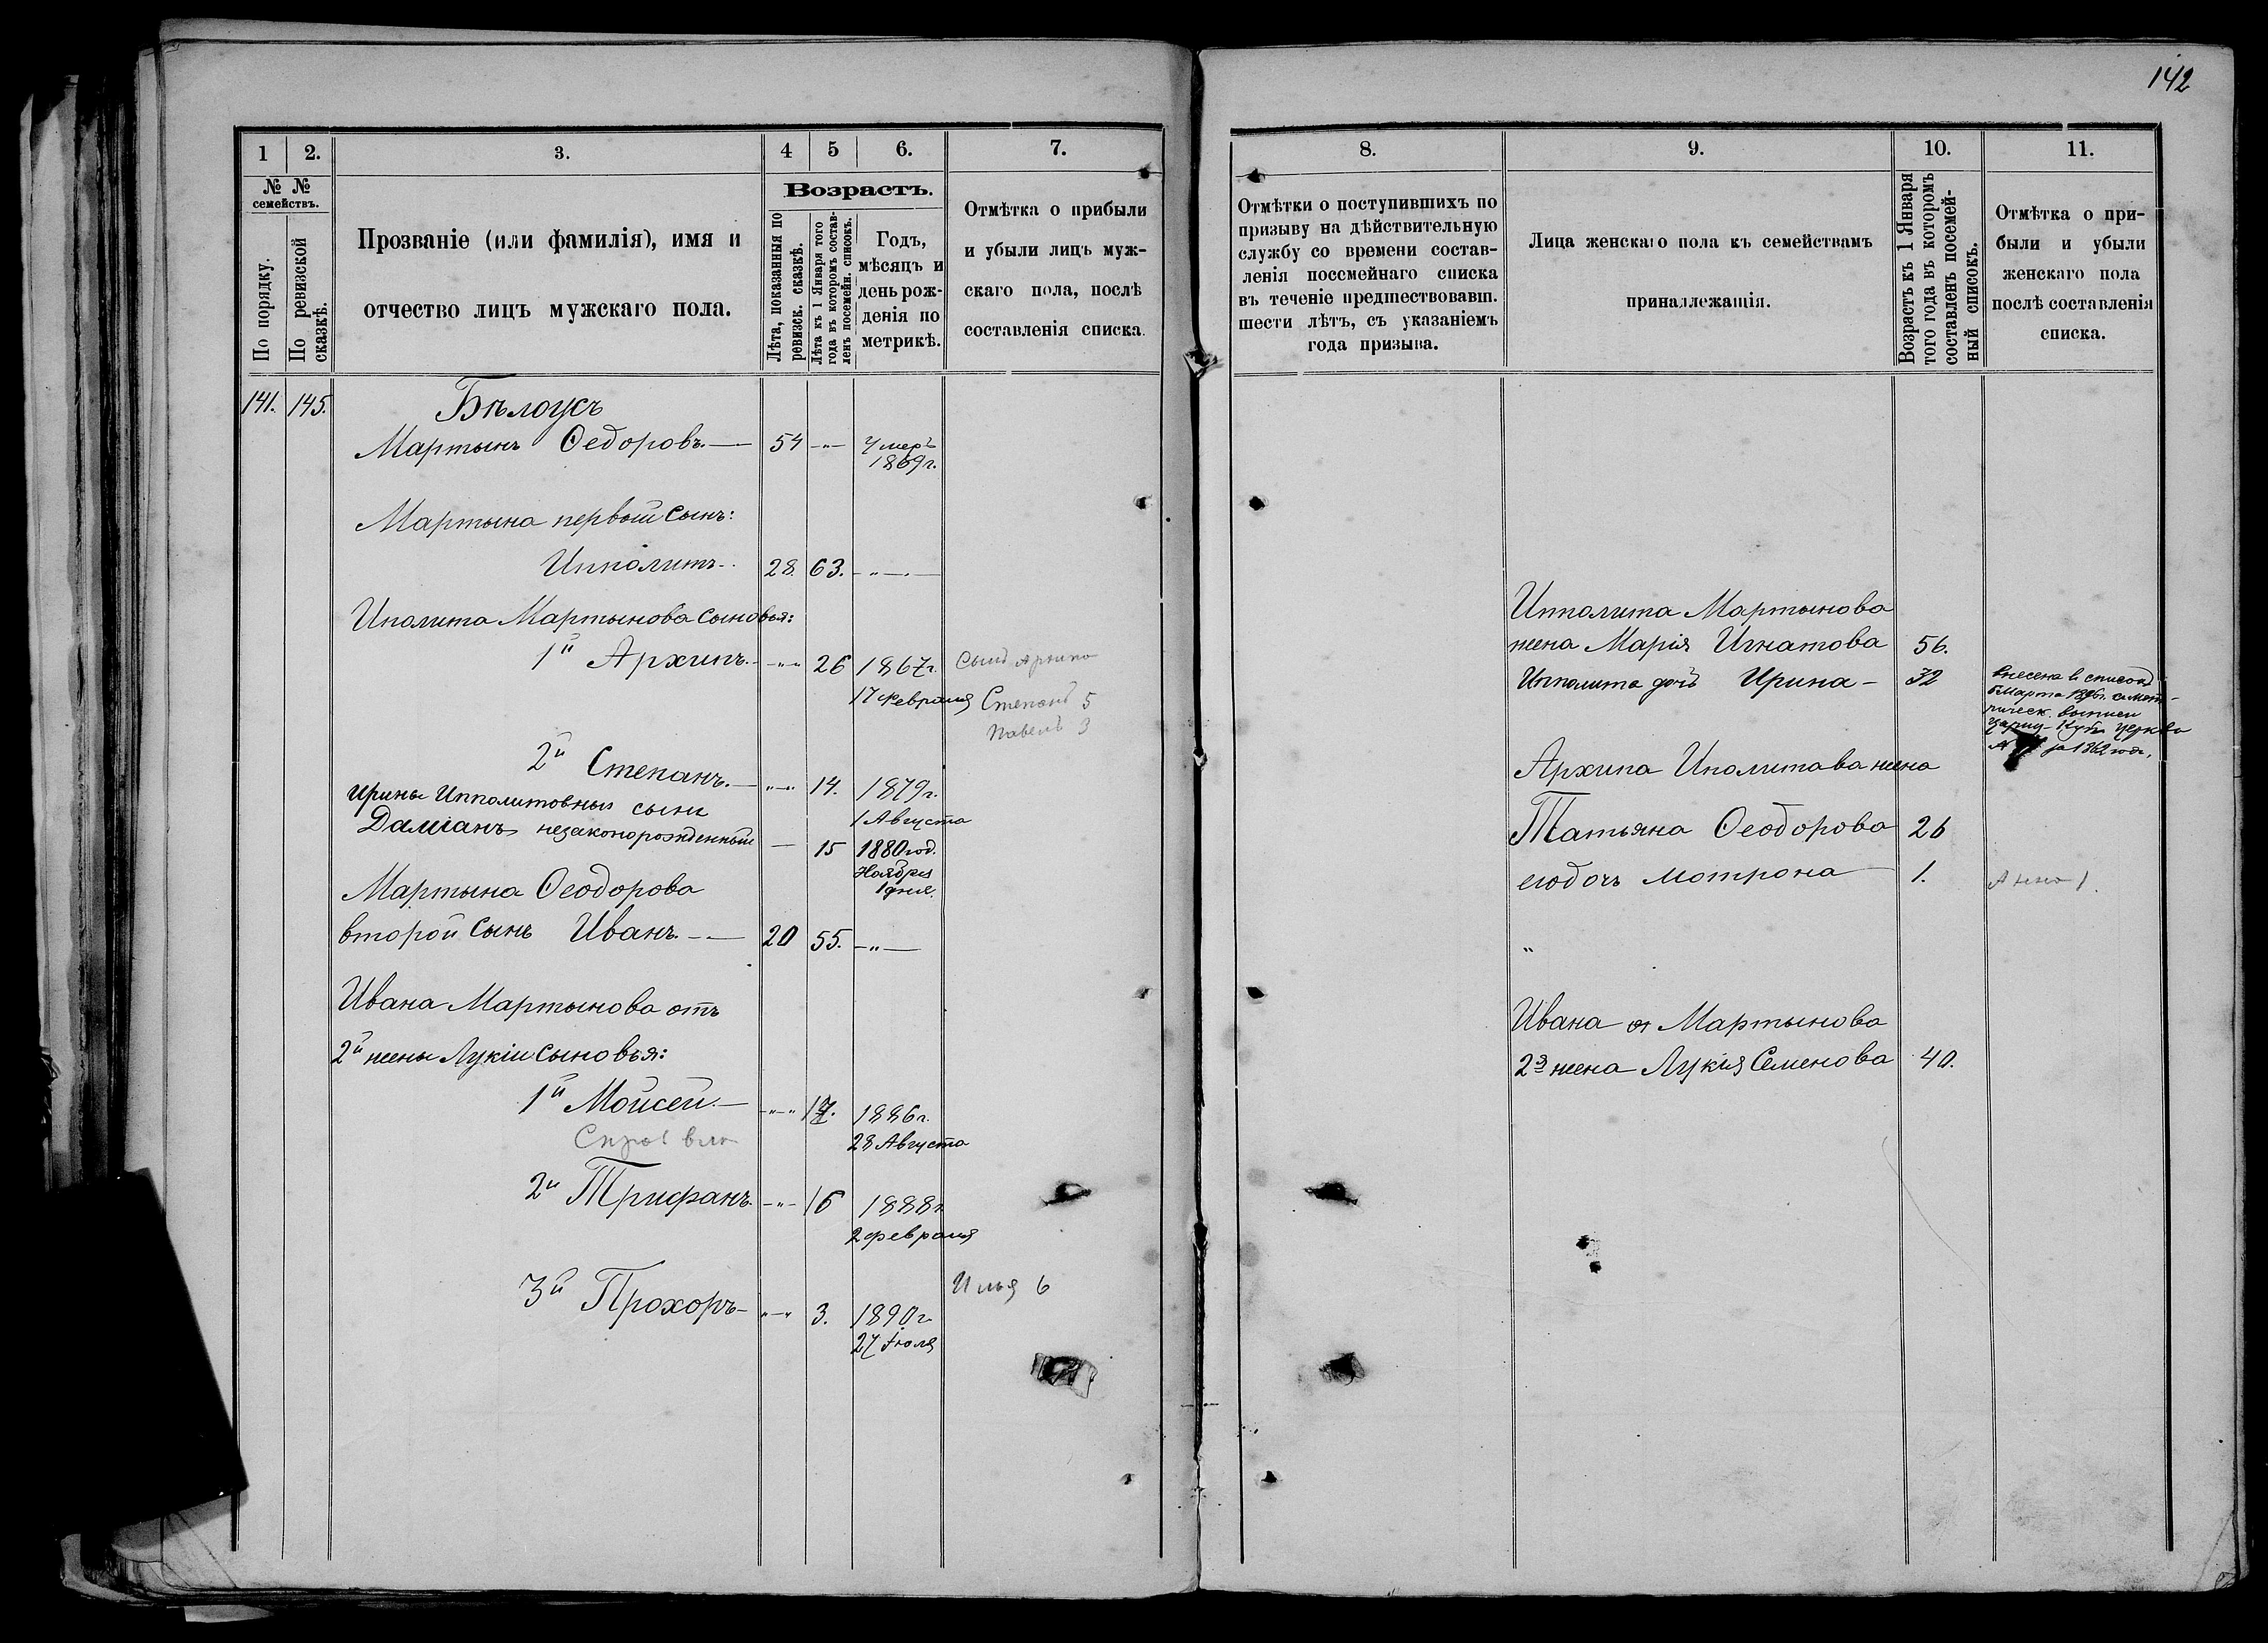 142
1 2. 3. 4 5 6. 7.
№ №
семействъ.
По порядку.
По ревизской
сказкѣ.
Прозваніе (или фамилія), имя и
отчество лицъ мужскаго пола.
Возрастъ.
Лѣта, показанныя по
ревизск. сказкѣ.
Лѣта къ 1 Января того
года въ которомъ состав-
ленъ посемейн. списокъ.
Годъ,
мѣсяцъ и
день рож-
денія по
метрикѣ.
Отмѣтка о прибыли
и убыли лицъ муж-
скаго пола, послѣ
составленія списка.
141. 145. Бѣлоусъ
Мартынъ Ѳедоровъ. — 54 -"- Умеръ
1869г.
Мартына первый сынъ:
Ипполитъ. 28. 63. -"-
Иполита Мартынова сыновья:
1й Архипъ. -"- 26 1867г. Сынъ Архипа
17 Февраля Степанъ 5
Павелъ 3
2й Степанъ. -"- 14. 1879г.
1 Августа
Ирины Ипполитовны сынъ
Даміанъ незаконорожденный — 15 1880 год.
Ноября
1 дня.
Мартына Ѳеодорова
второй сынъ Иванъ. — 20 55. -"-
Ивана Мартынова отъ
2й жены Лукіи сыновья:
1й Мойсей. -"- 17. 1886г.
28 Августа
2й Трифанъ. -"- 16 1888г.
2 февраля
Илья 6
3й Прохоръ -"- 3. 1890г.
27 Іюля
8. 9. 10. 11.
Отмѣтки о поступившихъ по
призыву на дѣйствительную
службу со времени состав-
ленія посемейнаго списка
въ теченіе предшествовавш.
шести лѣтъ, съ указаніемъ
года призыва.
Лица женскаго пола къ семействамъ
принадлежащія.
Возрастъ къ 1 Января
того года въ которомъ
составленъ посемей-
ный списокъ.
Отмѣтка о при-
были и убыли
женскаго пола
послѣ составленія
списка.
Ипполита Мартынова
жена Марія Игнатова 56.
Ипполита дочь Ирина - 32 внесена в список
Марта 1896г.
церква
за 1862 годъ.
Архипа Иполитава жена
Татьяна Ѳеодорова 26
его дочь Мотрона 1. Анна 1.
"
Ивана Мартынова
2я жена Лукія Семенова 40.